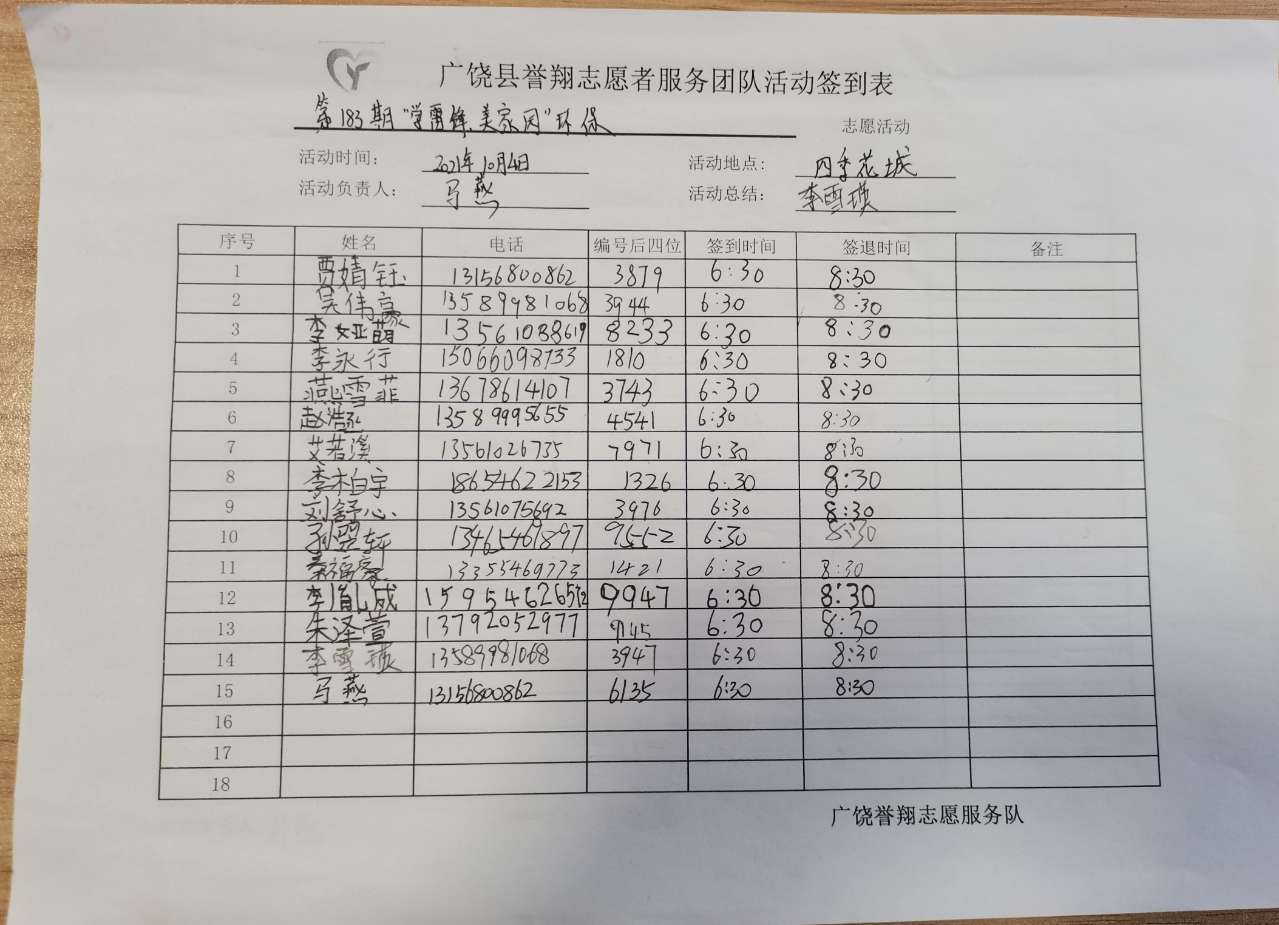 广饶县誉翔志愿者服务团队活动签到表
第183期“学雷锋、美家园”环保 志愿活动
活动时间： 2021年10月4日 活动地点： 四季花城
活动负责人： 马燕 活动总结： 李雪瑛
序号 姓名 电话 编号后四位 签到时间 签退时间 备注
1 贾婧钰 13156800862 3879 6:30 8:30
2 吴伟豪 13589981068 3944 6:30 8:30
3 李娅菡 13561038619 8233 6:30 8:30
4 李永行 15066098733 1810 6:30 8:30
5 燕雪菲 13678614107 3743 6:30 8:30
6 赵浩丞 13589995655 4541 6:30 8:30
7 艾若溪 13561026735 7971 6:30 8:30
8 李柏宇 18654622153 1326 6:30 8:30
9 刘舒心 13561075692 3976 6:30 8:30
10 13465467897 9552 6:30 8:30
11 秦福豪 13353469773 1421 6:30 8:30
12 李胤成 9947 6:30 8:30
13 朱泽萱 13792052977 6:30 8:30
14 李雪瑛 13589981068 3947 6:30 8:30
15 马燕 13156800862 6135 6:30 8:30
16
17
18
广饶誉翔志愿服务队